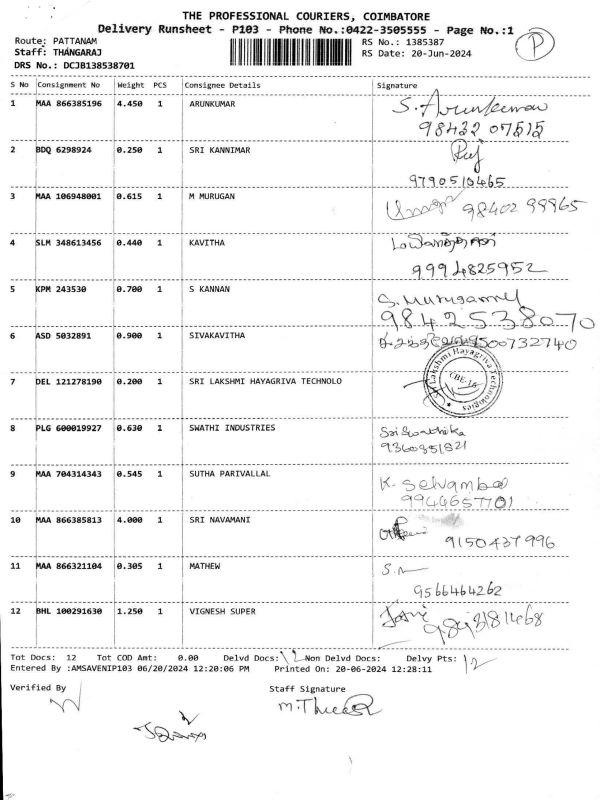 THE PROFESSIONAL COURIERS, COIMBATORE
Delivery Runsheet - P103 - Phone No.:0422-3505555 - Page No.:1
P
Route: PATTANAM RS No.: 1385387
Staff: THANGARAJ RS Date: 20-Jun-2024
DRS No.: DCJB138538701
S No Consignment No Weight PCS Consignee Details Signature
1 MAA 866385196 4.450 1 ARUNKUMAR S. Arunkumar
98432 07515
2 BDQ 6298924 0.250 1 SRI KANNIMAR
9790510465
3 MAA 106948001 0.615 1 M MURUGAN 98402 99965
4 SLM 348613456 0.440 1 KAVITHA
9994825952
5 KPM 243530 0.700 1 S KANNAN
9842538070
6 ASD 5032891 0.900 1 SIVAKAVITHA 9500732740
7 DEL 121278190 0.200 1 SRI LAKSHMI HAYAGRIVA TECHNOLO
Lakshmi Hayagriva Technologies
8 PLG 600019927 0.630 1 SWATHI INDUSTRIES
9360351821
9 MAA 704314343 0.545 1 SUTHA PARIVALLAL K. Selvamba
9944657701
10 MAA 866385813 4.000 1 SRI NAVAMANI
9150437996
11 MAA 866321104 0.305 1 MATHEW
9566464262
12 BHL 100291630 1.250 1 VIGNESH SUPER
Tot Docs: 12 Tot COD Amt: 0.00 Delvd Docs: 12 Non Delvd Docs: Delvy Pts: 12
Entered By :AMSAVENIP103 06/20/2024 12:20:06 PM Printed On: 20-06-2024 12:28:11
Verified By Staff Signature